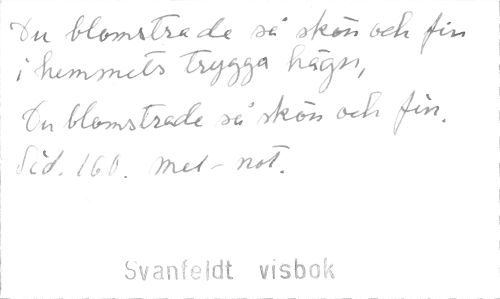 Du blomstrade så skön och fin
i hemmets trygga hägn,
Du blomstrade så skön och fin.
Sid. 160. mel-not.
Svanfeldt visbok